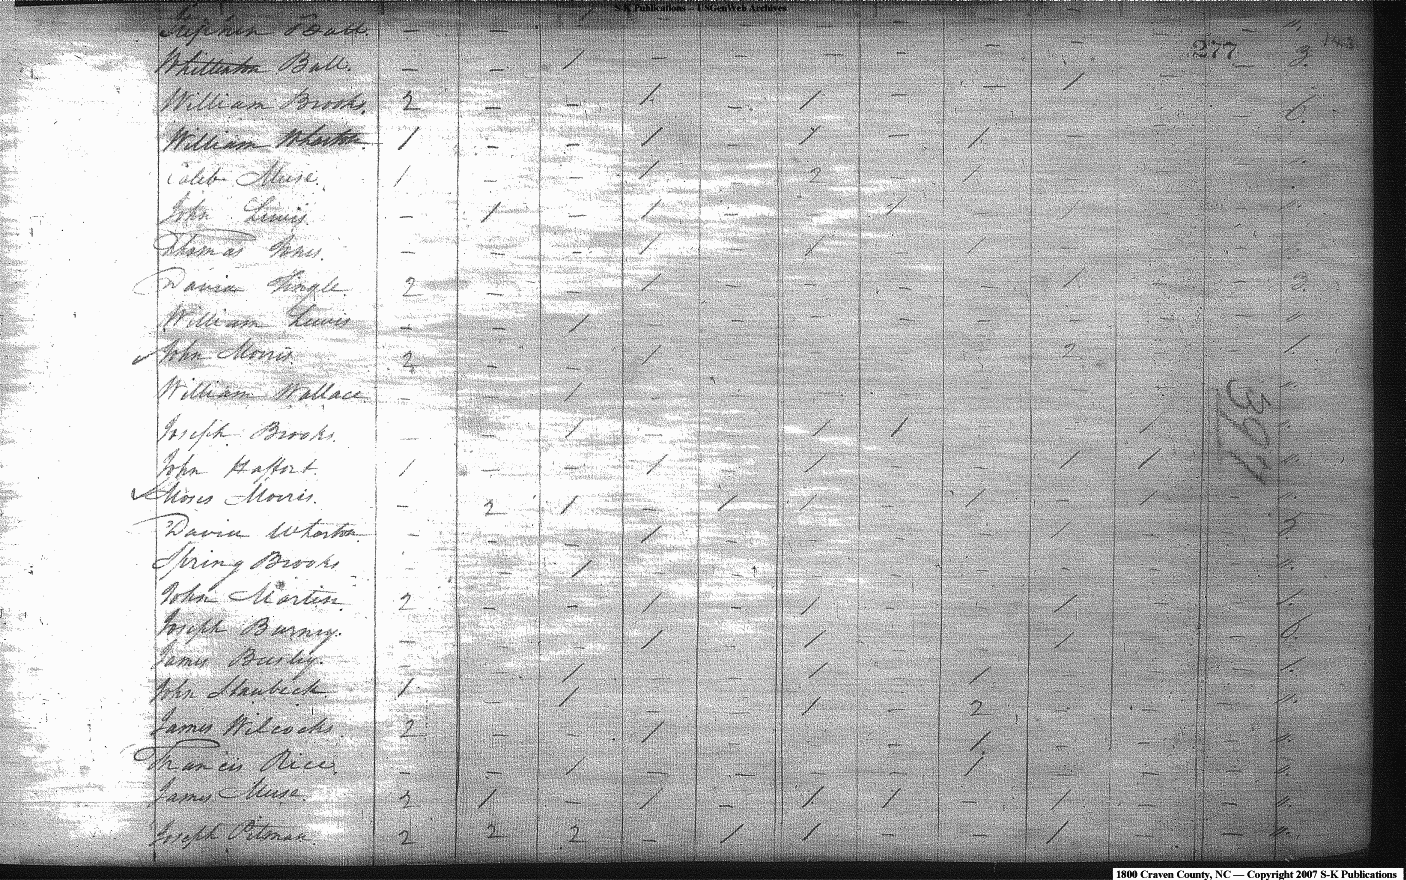 S-K Publications – USGenWeb Archives
Stephen Ball. — — — "
277 143
Ball. — — / — — — — — — — 3.
William Brooks. 2 — — / — / — — / 6.
William Wharton. 1 — — / — / — /
Caleb Muse. 1 — — / 2 — /
John Lewis — 1 — / — / — / "
Thomas Jones. — — — / / — / "
David Tingle. 2 — — / — — / 3.
William Lewis — — / — — — — "
John Morris. 2 — — / — — 2 — /.
William Wallace — — / — — — — "
Joseph Brooks. — — / — / / — — / "
John Haffort. 1 — — / / — — / / "
Moses Morris. — 2 / — / / — / — / "
David Wharton. — — — / — — / 5
Spring Brooks — — / — — — — "
John Martin. 2 — — / / — — / — /.
Joseph Burney. — — — / / — — / — 6.
James Busby. — — / — / — / — — /.
John Slaubeck 1 — / — / — 2 — — "
James Wilcocks 2 — — / — — / — — "
Francis Rice. — — / — — — — / — — "
James Muse. 2 / — / — / / — / — "
Joseph Pitman. 2 2 2 — / / — — / — — "
397
1800 Craven County, NC — Copyright 2007 S-K Publications